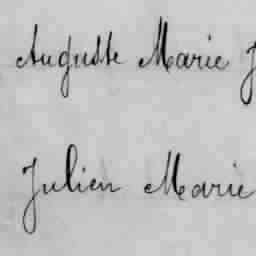 Auguste Marie J
Julien Marie